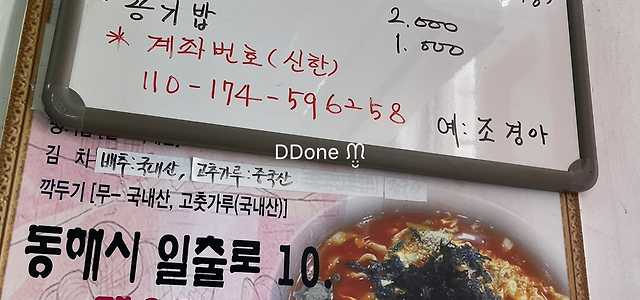 공기밥 2.000
1.000
* 계좌번호(신한)
110-174-596258
예:조경아
DDone
김 차 배추:국내산, 고춧가루:중국산
깍두기 [무-국내산, 고춧가루(국내산)]
동해시 일출로 10.